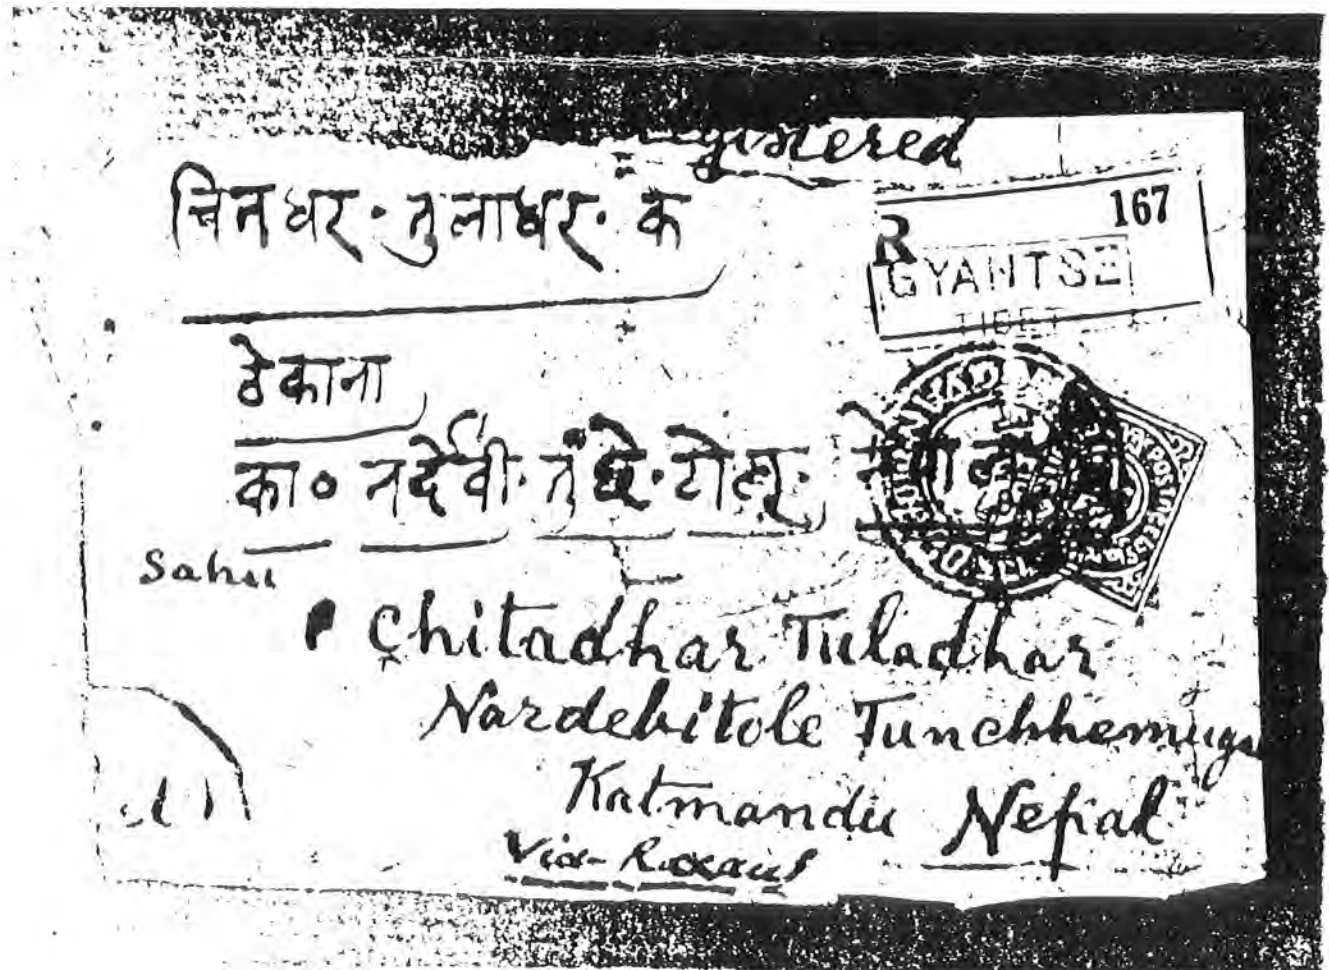 Registered
चितधर · तुलाधर · क
R 167
GYANTSE
TIBET
ठेकाना
का० नर्देवी · तुंछे · टोल्
Sahu
Chitadhar Tuladhar
Nardebitole Tunchhemuga
Katmandu Nepal
Via- Raxaul